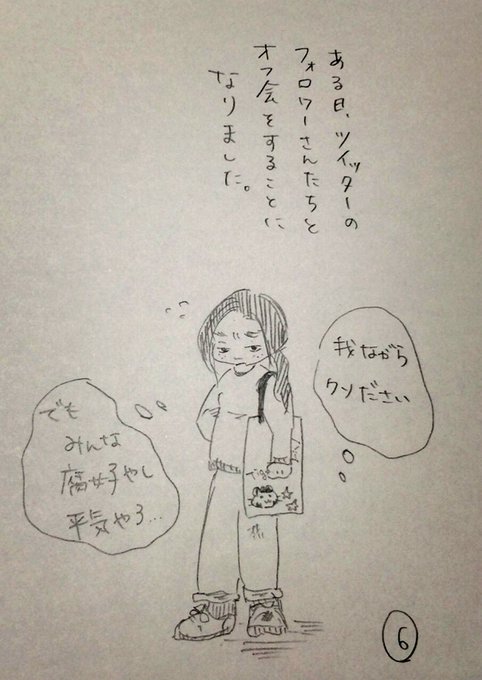 ある日、ツイッターの
フォロワーさんたちと
オフ会をすることに
なりました。
我ながら
クソださい
でも
みんな
腐女子やし
平気やろ…
6